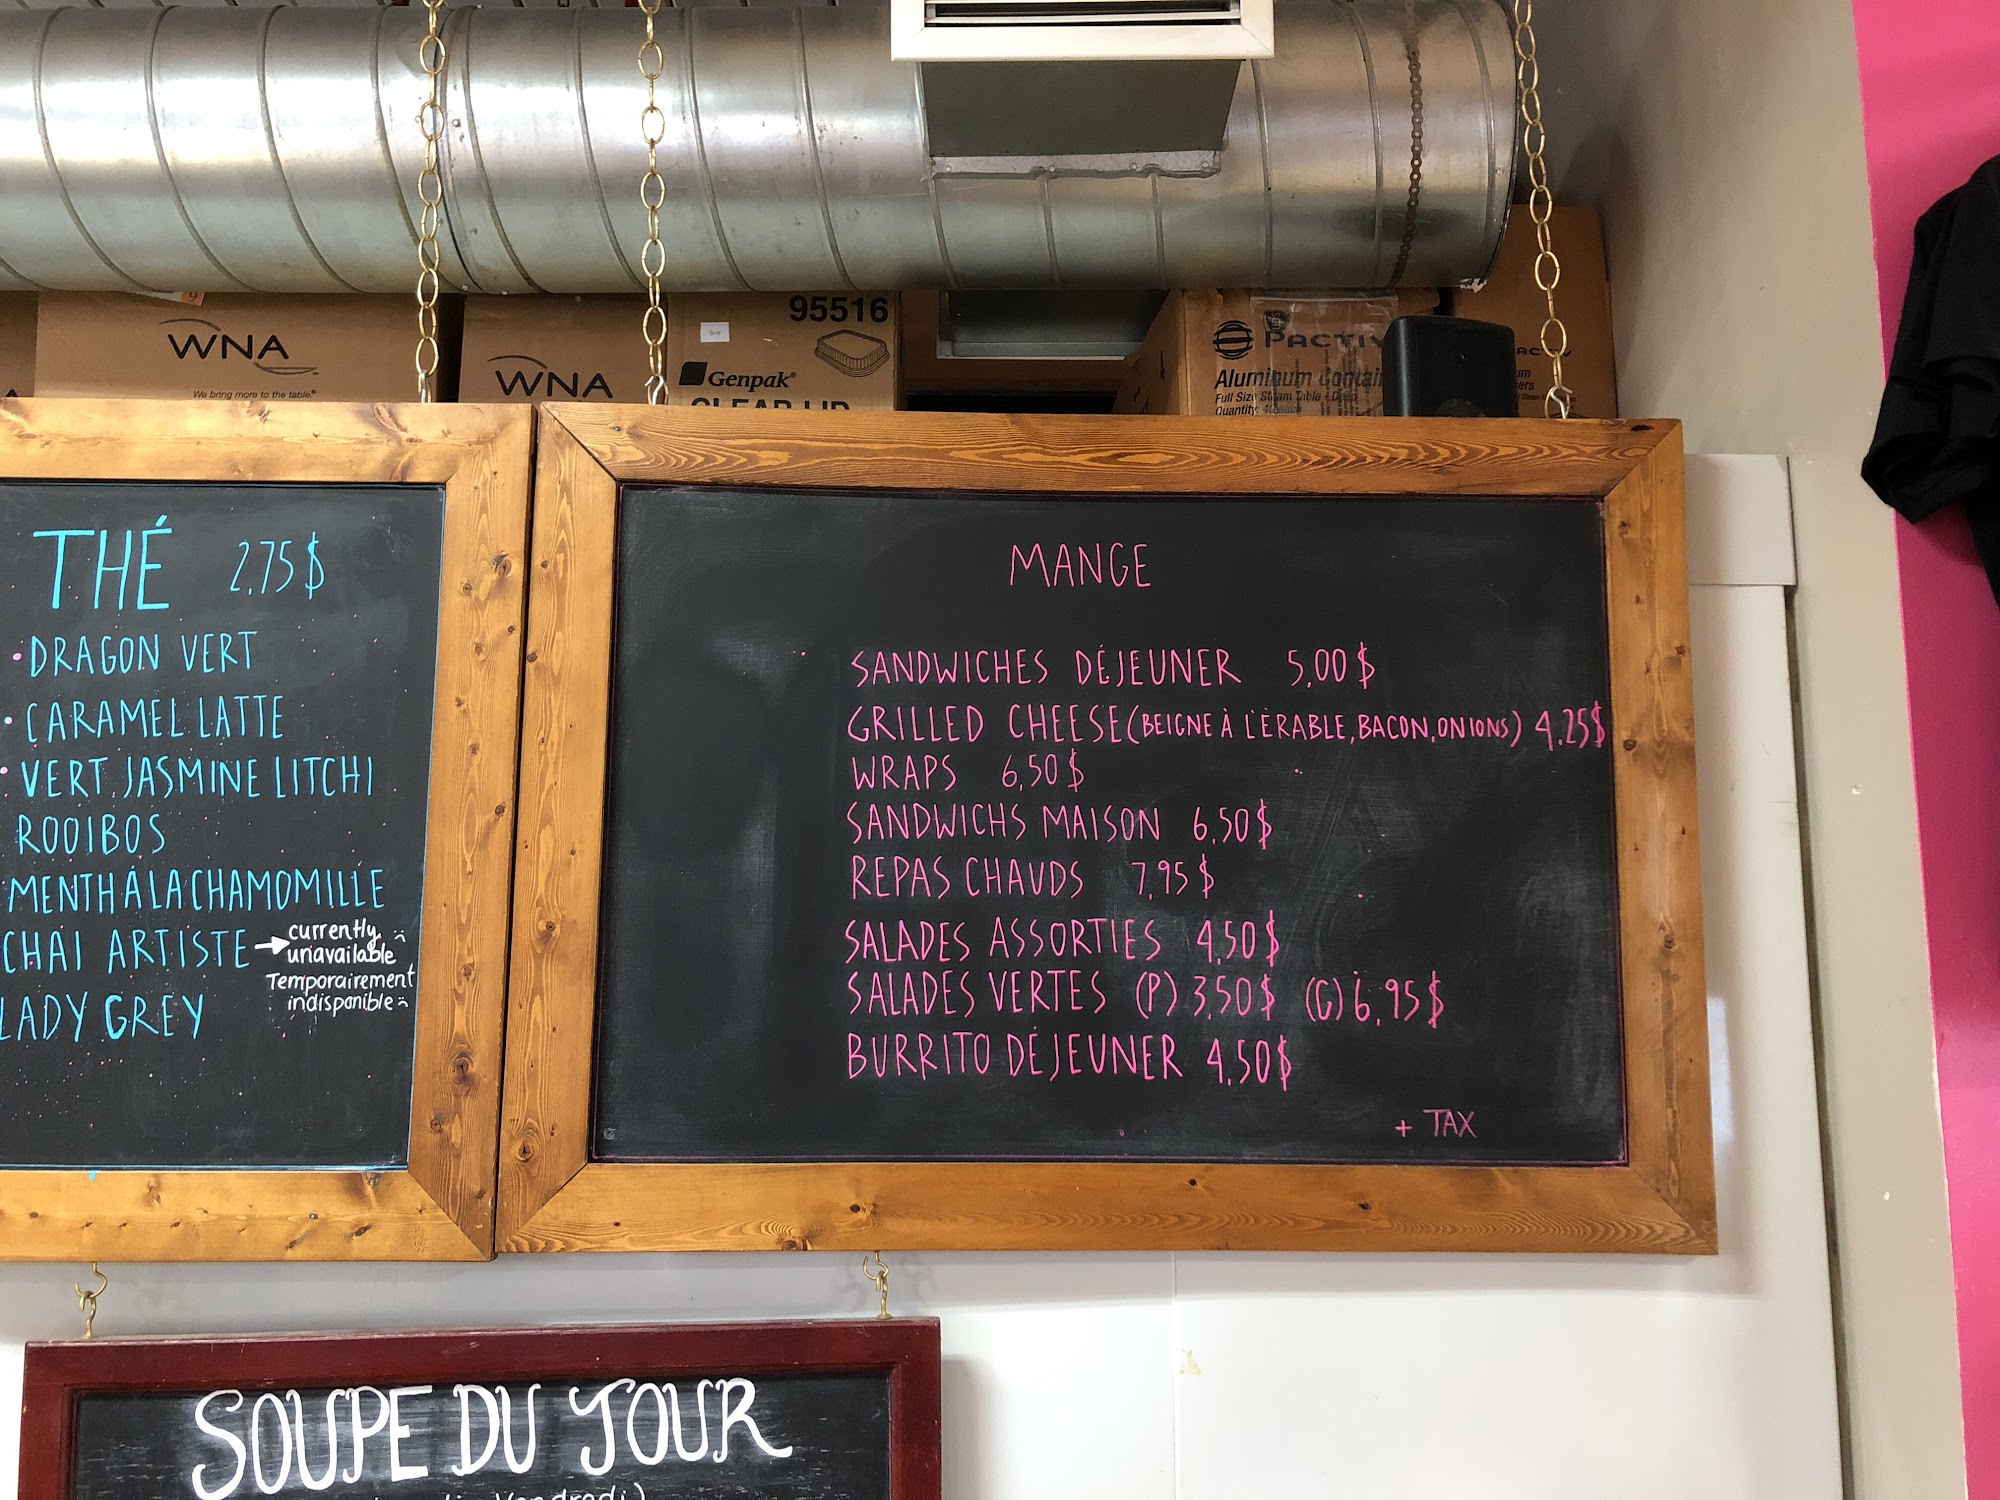 WNA
We bring more to the table.®
WNA
95516
Genpak®
CLEAR LID
PACTIV
Aluminum Contai
Full Size Steam Table - Deep
Quantity: 40 each
THÉ 2,75$
• DRAGON VERT
• CARAMEL LATTE
• VERT JASMINE LITCHI
ROOIBOS
MENTH À LA CHAMOMILLE
CHAI ARTISTE → currently unavailable
Temporairement
indisponible
LADY GREY
MANGE
SANDWICHES DÉJEUNER 5,00$
GRILLED CHEESE (BEIGNE À L'ÉRABLE, BACON, ONIONS) 4,25$
WRAPS 6,50$
SANDWICHS MAISON 6,50$
REPAS CHAUDS 7,95$
SALADES ASSORTIES 4,50$
SALADES VERTES (P) 3,50$ (G) 6,95$
BURRITO DÉJEUNER 4,50$
+ TAX
SOUPE DU JOUR
Vendredi)